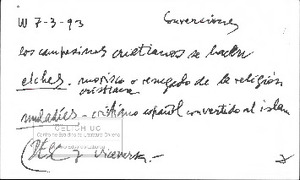 W 7-3-93 Conversiones
los campesinos cristianos se hacen
elches - morisco o renegado de la religión
cristiana
muladíes - cristiano español convertido al islam
CELICH UC
y viceversa.-